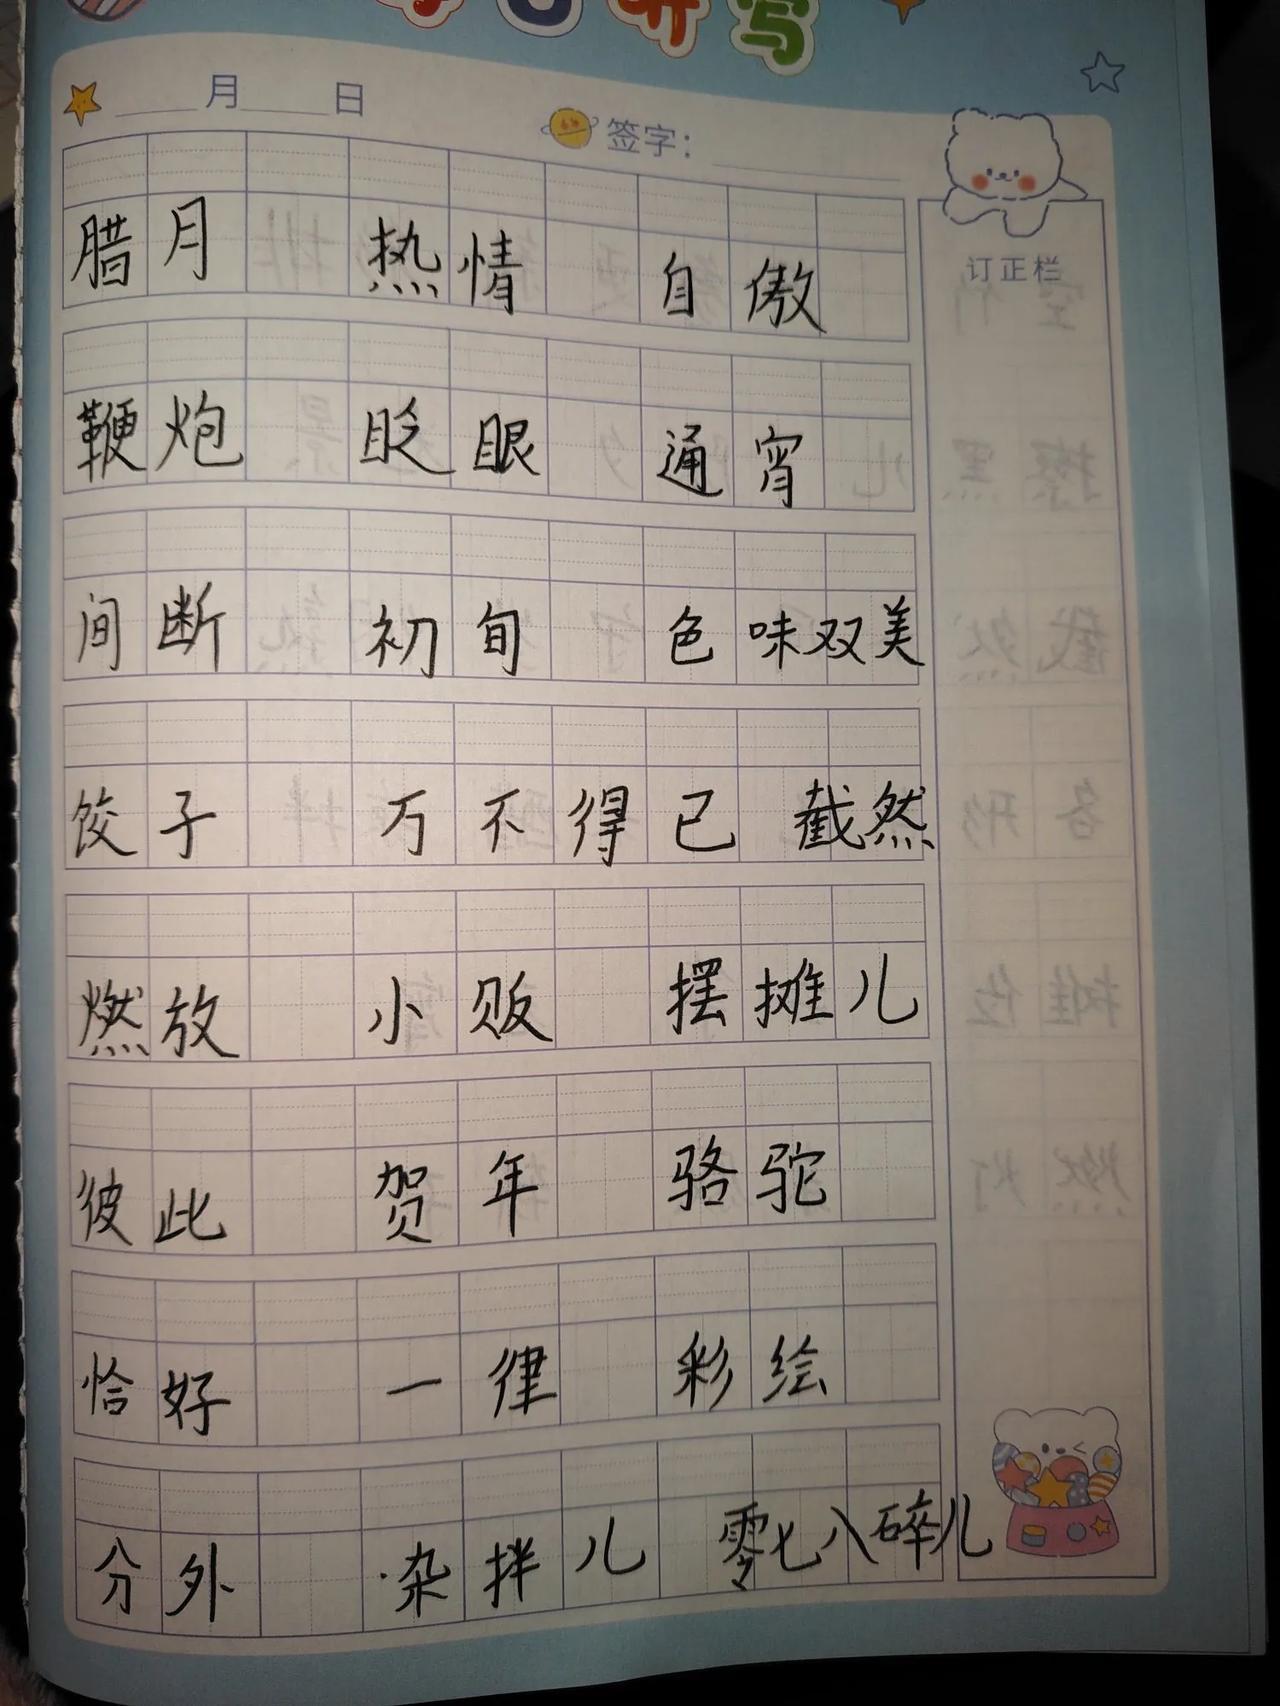 听写
月 日 签字：
订正栏
腊月 热情 自傲
鞭炮 眨眼 通宵
间断 初旬 色味双美
饺子 万不得已 截然
燃放 小贩 摆摊儿
彼此 贺年 骆驼
恰好 一律 彩绘
分外 杂拌儿 零七八碎儿